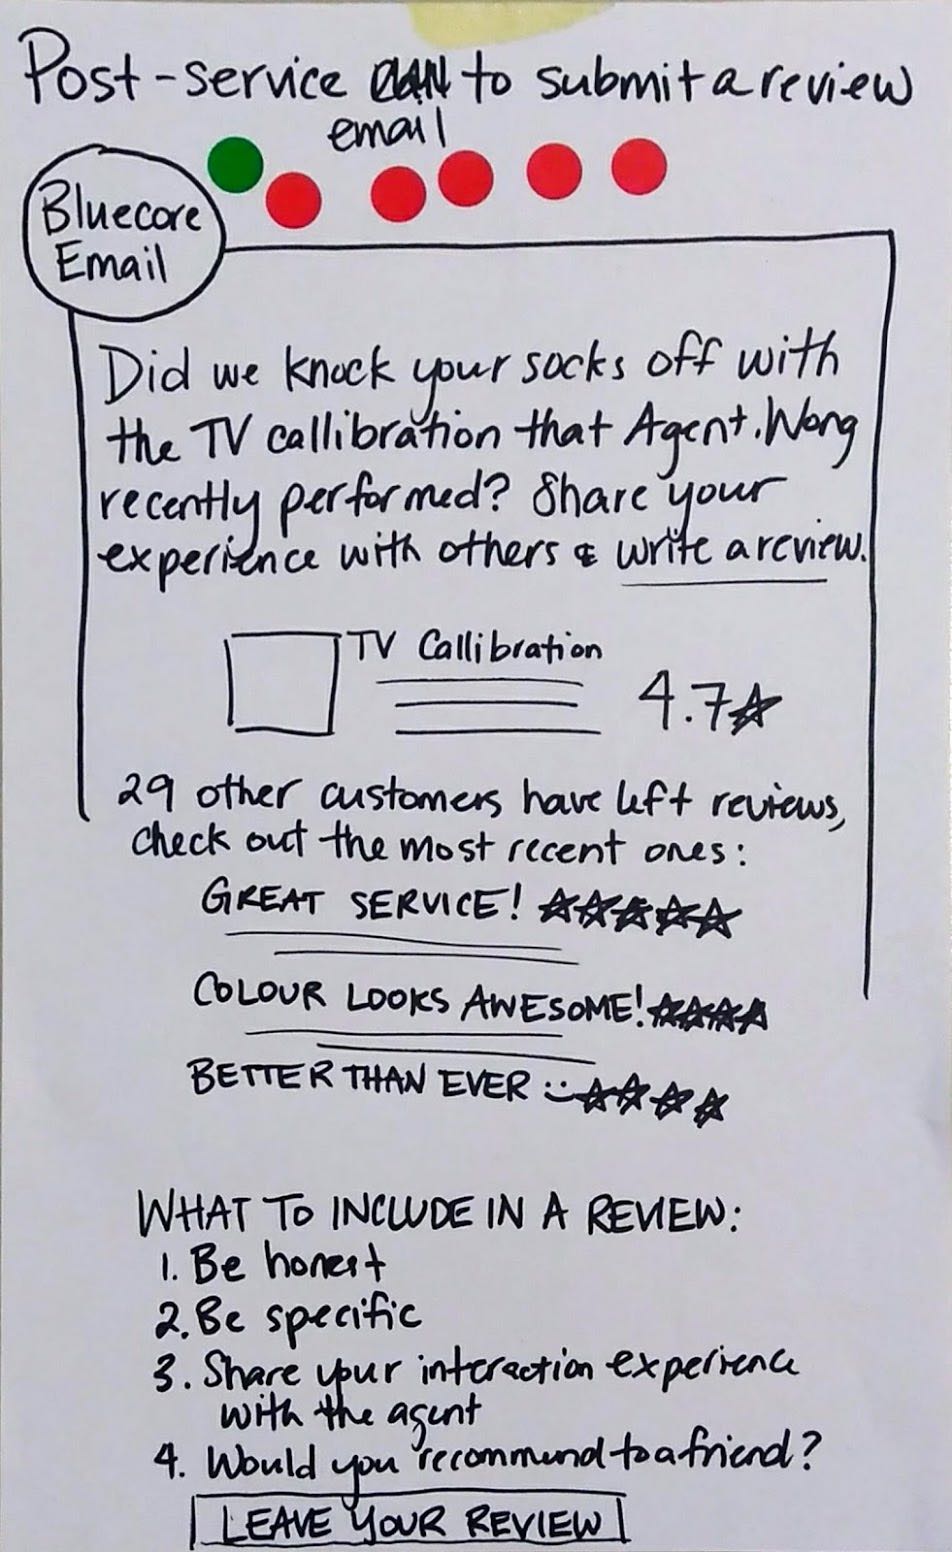 Post-service to submit a review
email
Bluecore
Email
Did we knock your socks off with
the TV callibration that Agent. Wong
recently performed? Share your
experience with others & write a review.
TV Callibration
4.7☆
29 other customers have left reviews,
check out the most recent ones:
GREAT SERVICE! ☆☆☆☆☆
COLOUR LOOKS AWESOME! ☆☆☆☆
BETTER THAN EVER :) ☆☆☆☆
WHAT TO INCLUDE IN A REVIEW:
1. Be honest
2. Be specific
3. Share your interaction experience
with the agent
4. Would you recommend to a friend?
LEAVE YOUR REVIEW